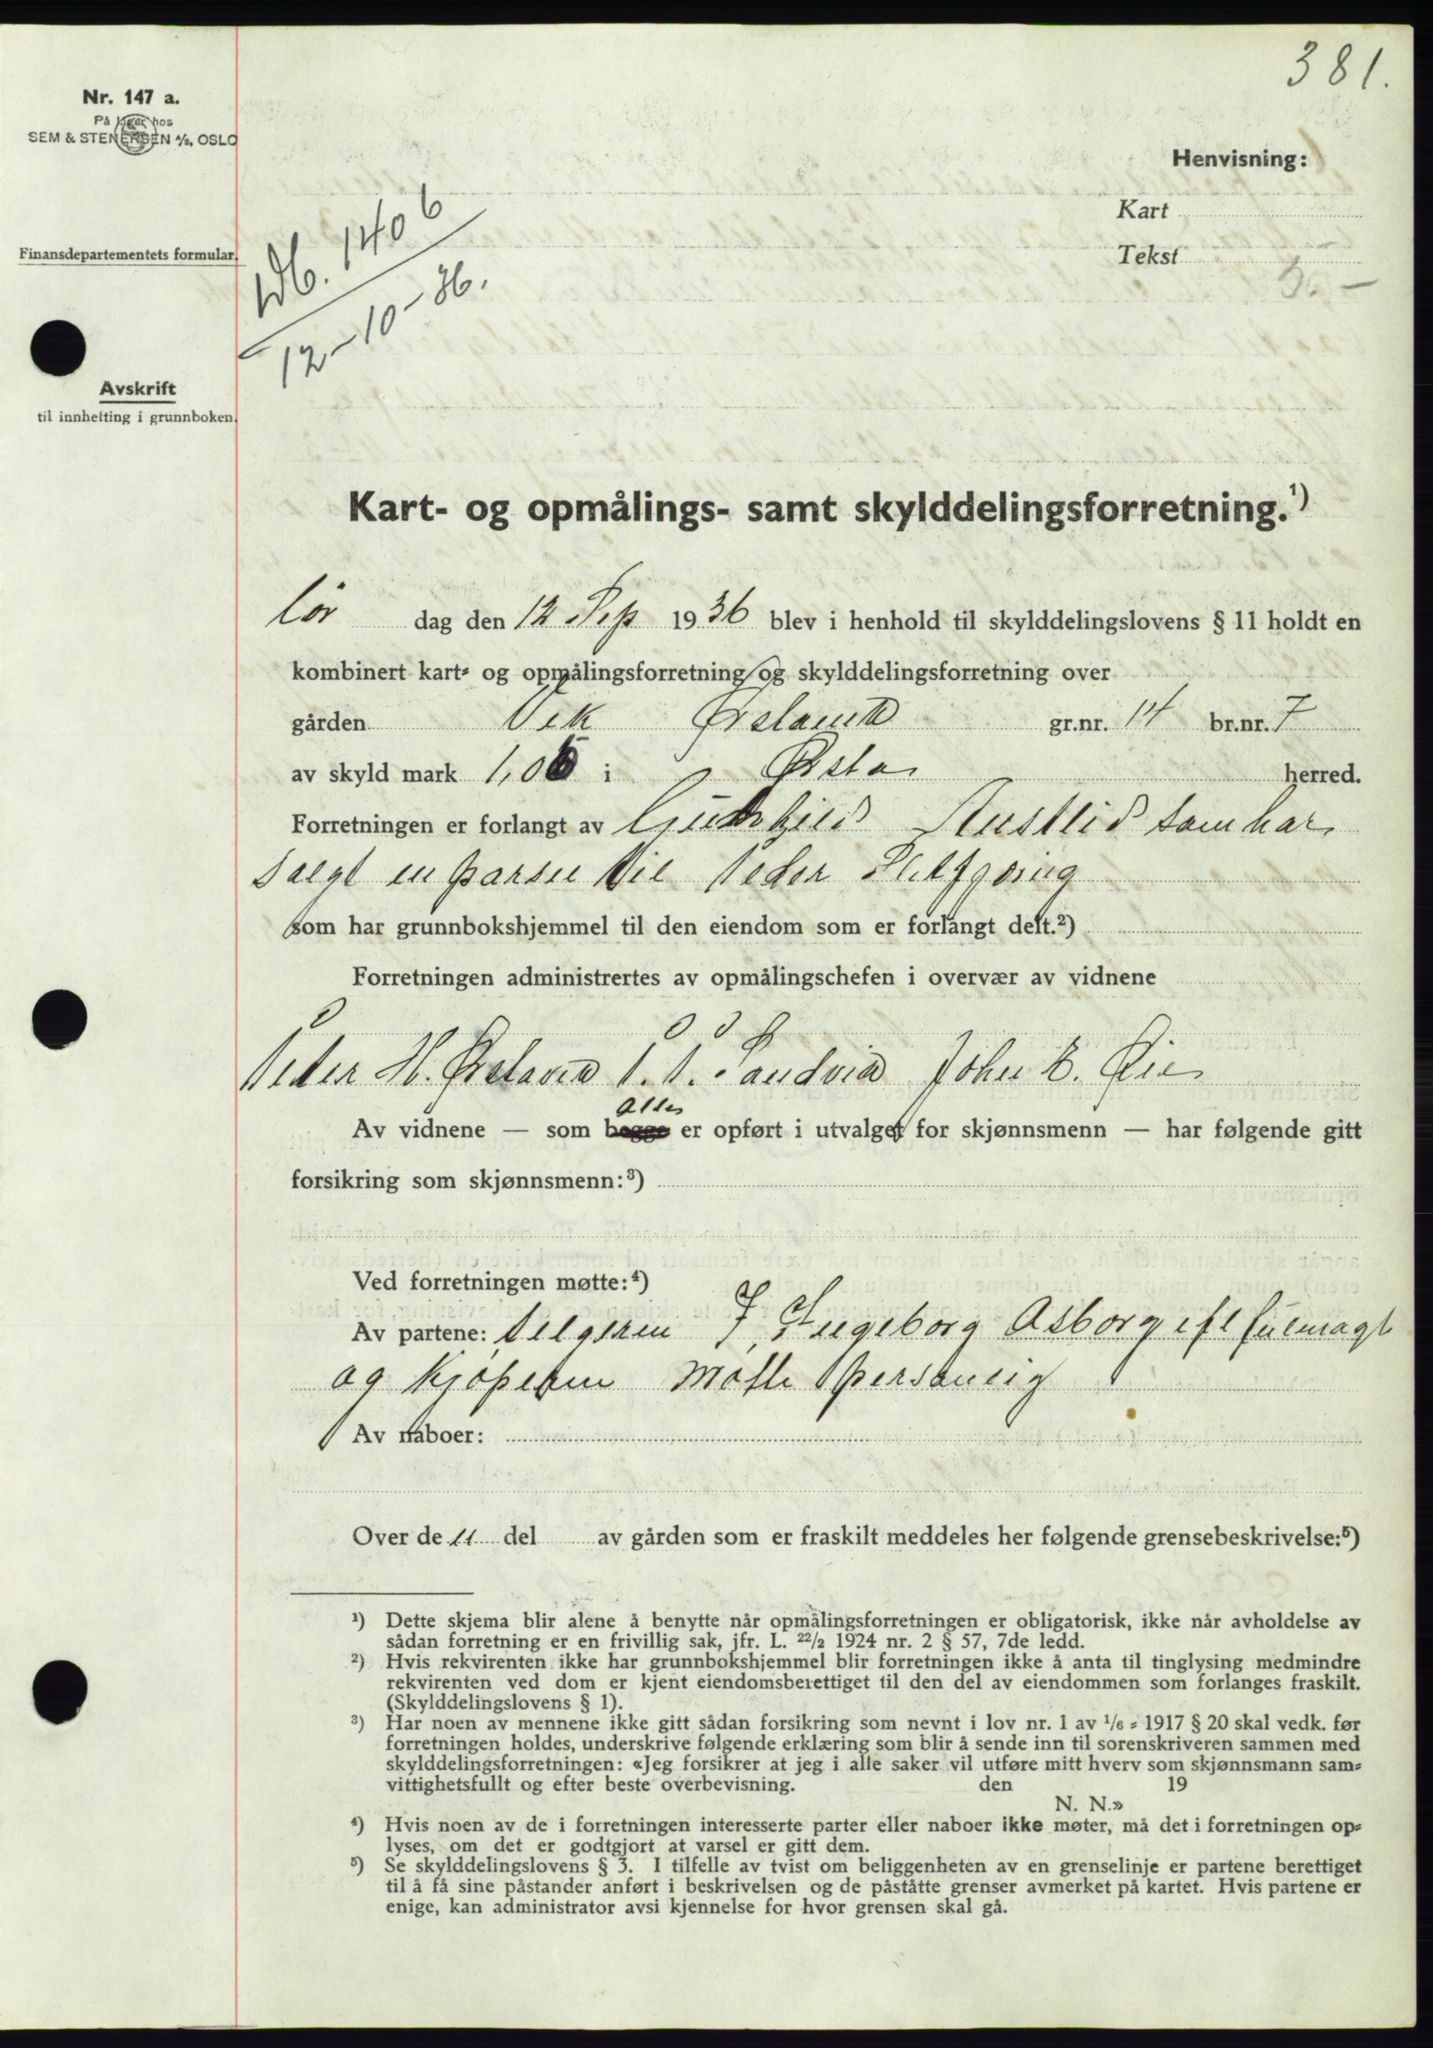 381.
Nr. 147 a.
På lager hos
SEM & STENERSEN A/S, OSLO
Henvisning:
Kart
Tekst
5.–
Finansdepartementets formular.
Db. 1406
12-10-36.
Avskrift
til innhefting i grunnboken.
Kart- og opmålings- samt skylddelingsforretning.¹)
Lør dag den 12 Sep 1936 blev i henhold til skylddelingslovens § 11 holdt en
kombinert kart- og opmålingsforretning og skylddelingsforretning over
gården Vik Ørstavik gr.nr. 14 br.nr. 7
av skyld mark 1,06 i Ørsta herred.
Forretningen er forlangt av Austlid som har
Salgt en parsel til Peder
som har grunnbokshjemmel til den eiendom som er forlangt delt.²)
Forretningen administrertes av opmålingschefen i overvær av vidnene
Peder H. Ørstavik P. P. Sandvik John E. Øie
alle
Av vidnene — som begge er opført i utvalget for skjønnsmenn — har følgende gitt
forsikring som skjønnsmenn:³)
Ved forretningen møtte:⁴)
Av partene: Selgeren Ingeborg Asborg efl fulmagt
og Kjøperen møtte personlig
Av naboer:
Over de 11 del av gården som er fraskilt meddeles her følgende grensebeskrivelse:⁵)
¹) Dette skjema blir alene å benytte når opmålingsforretningen er obligatorisk, ikke når avholdelse av
sådan forretning er en frivillig sak, jfr. L. 22/2 1924 nr. 2 § 57, 7de ledd.
²) Hvis rekvirenten ikke har grunnbokshjemmel blir forretningen ikke å anta til tinglysing medmindre
rekvirenten ved dom er kjent eiendomsberettiget til den del av eiendommen som forlanges fraskilt.
(Skylddelingslovens § 1).
³) Har noen av mennene ikke gitt sådan forsikring som nevnt i lov nr. 1 av 1/6 - 1917 § 20 skal vedk. før
forretningen holdes, underskrive følgende erklæring som blir å sende inn til sorenskriveren sammen med
skylddelingsforretningen: «Jeg forsikrer at jeg i alle saker vil utføre mitt hverv som skjønnsmann sam-
vittighetsfullt og efter beste overbevisning. den 19
N. N.»
⁴) Hvis noen av de i forretningen interesserte parter eller naboer ikke møter, må det i forretningen op-
lyses, om det er godtgjort at varsel er gitt dem.
⁵) Se skylddelingslovens § 3. I tilfelle av tvist om beliggenheten av en grenselinje er partene berettiget
til å få sine påstander anført i beskrivelsen og de påståtte grenser avmerket på kartet. Hvis partene er
enige, kan administrator avsi kjennelse for hvor grensen skal gå.